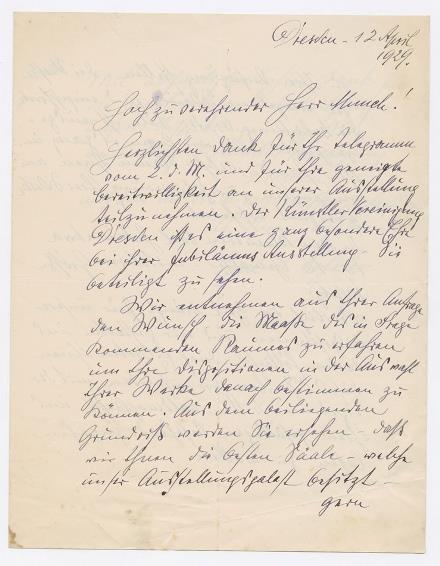 Dresden – 12 April
1929.
Hochzuverehrender Herr Munch!
Herzlichsten Dank für Ihr Telegramm
vom 2. d. M. und für Ihre geneigte
bereitwilligkeit an unserer Ausstellung
teilzunehmen. Der Künstlervereinigung
Dresden ist es eine ganz besondere Ehre
bei ihrer Jubiläums Ausstellung – Sie
beteiligt zu sehen.
Wir entnehmen aus Ihrer Anfrage
den Wunsch – die Maaße des in Frage
kommenden Raumes zu erfahren
um Ihre Dispositionen in der Auswahl
Ihrer Werke danach bestimmen zu
können. Aus dem beiliegenden
Grundriß werden Sie ersehen – daß
wir Ihnen die besten Sääle – welche
unser Ausstellungspalast besitzt –
gern